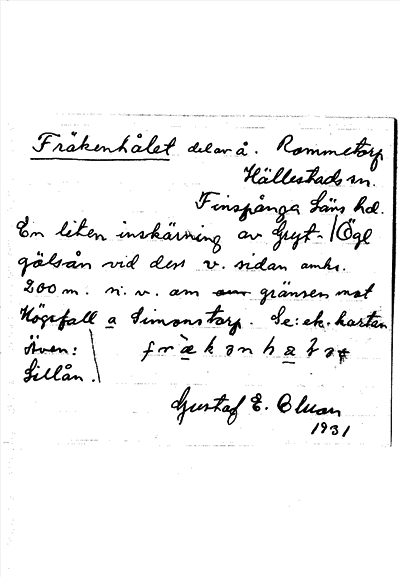 Fräkenhålet del av å. Rommetorp
Hällestads sn.
Finspånga Läns hd.
En liten inskärning av Gryt- / Ögl
gölsån vid dess v. sidan omkr.
200 m. n. v. om gränsen mot
Högsfall a Simonstorp. Se: ek. kartan
Även:
Lillån.
Gustaf E.
1931